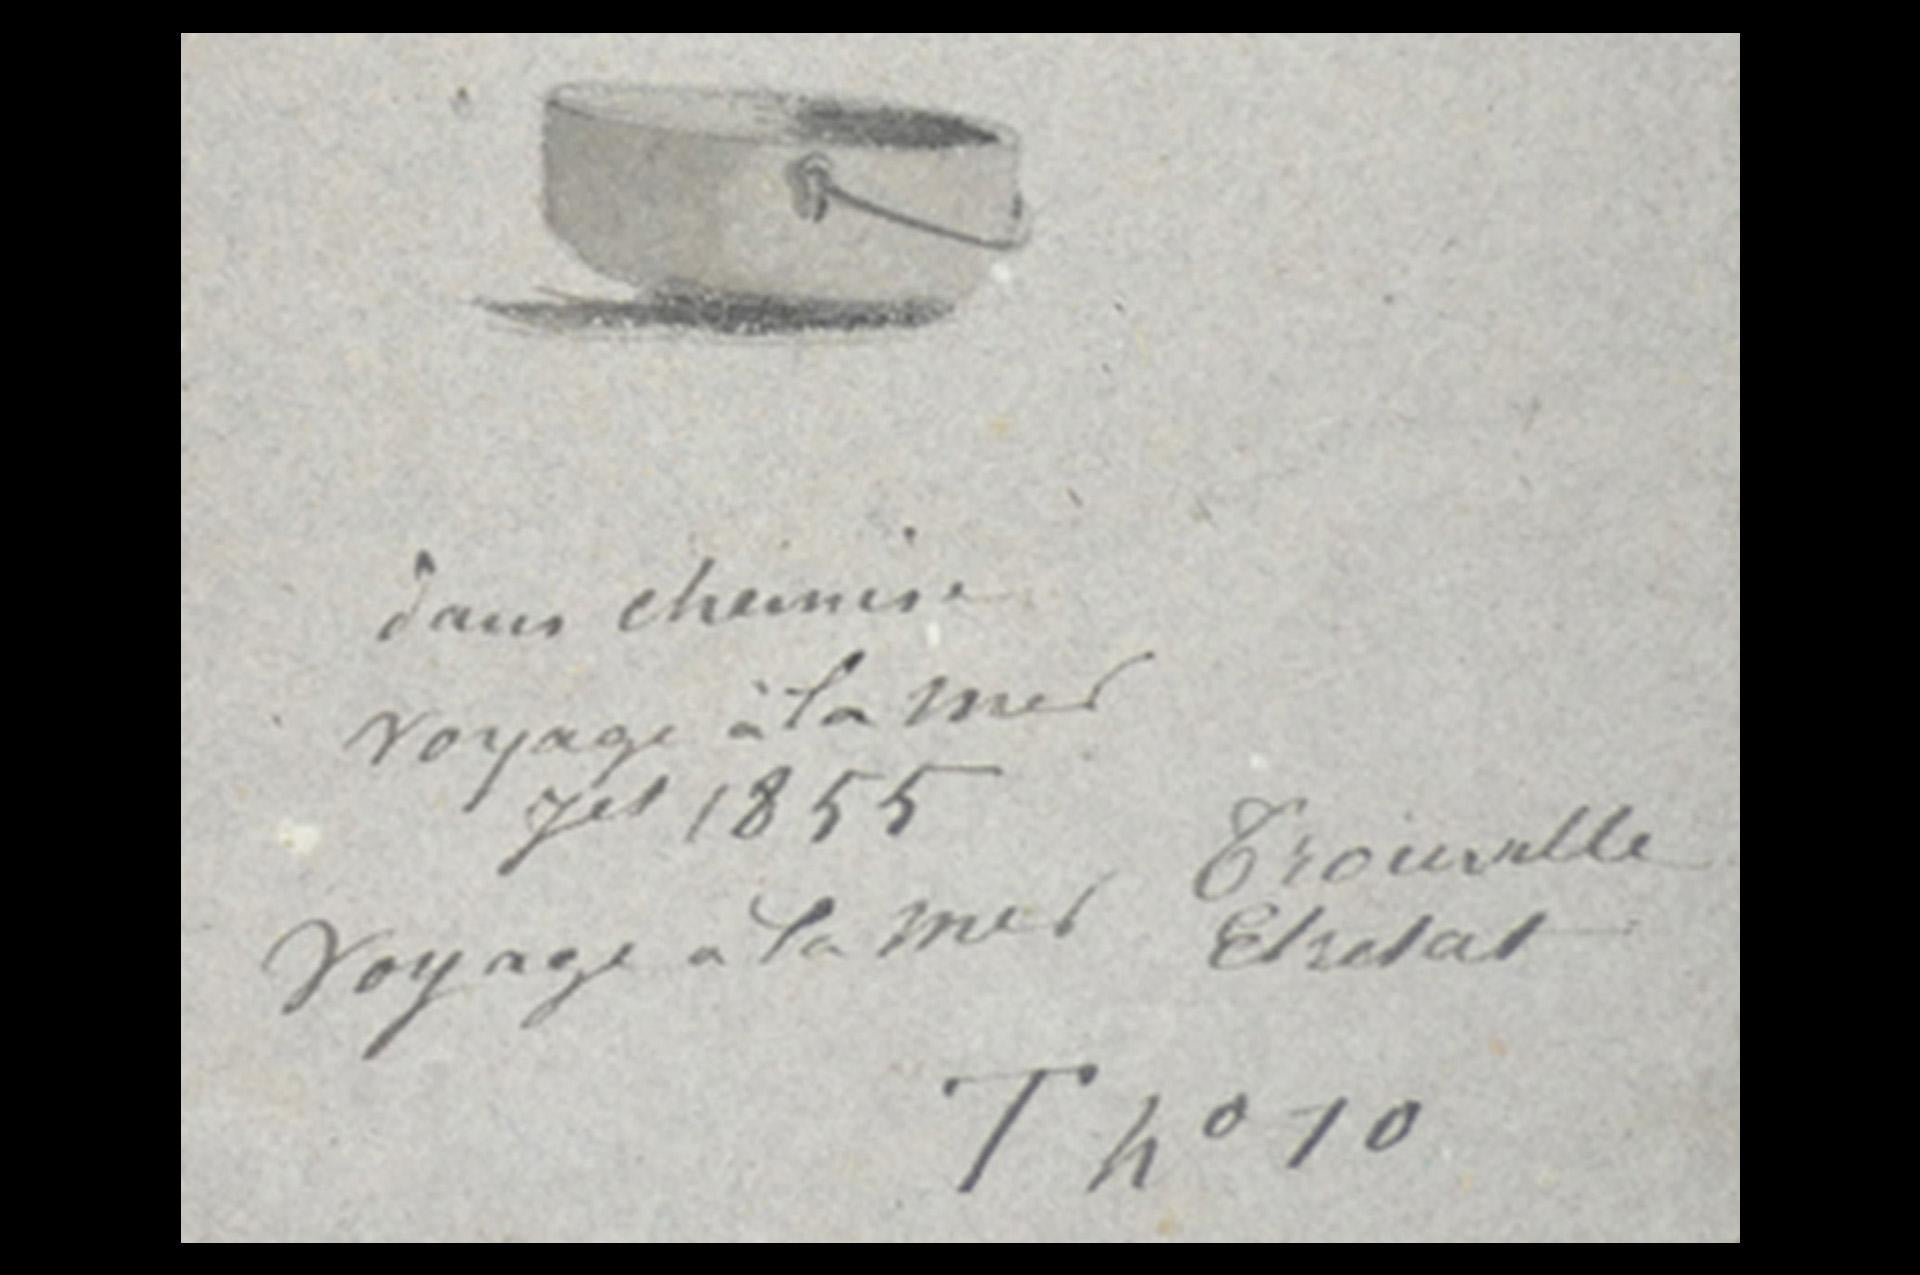 dans chemise
voyage à la mer
jet 1855
Voyage a la mer
Trouville
Etretat
T no 10